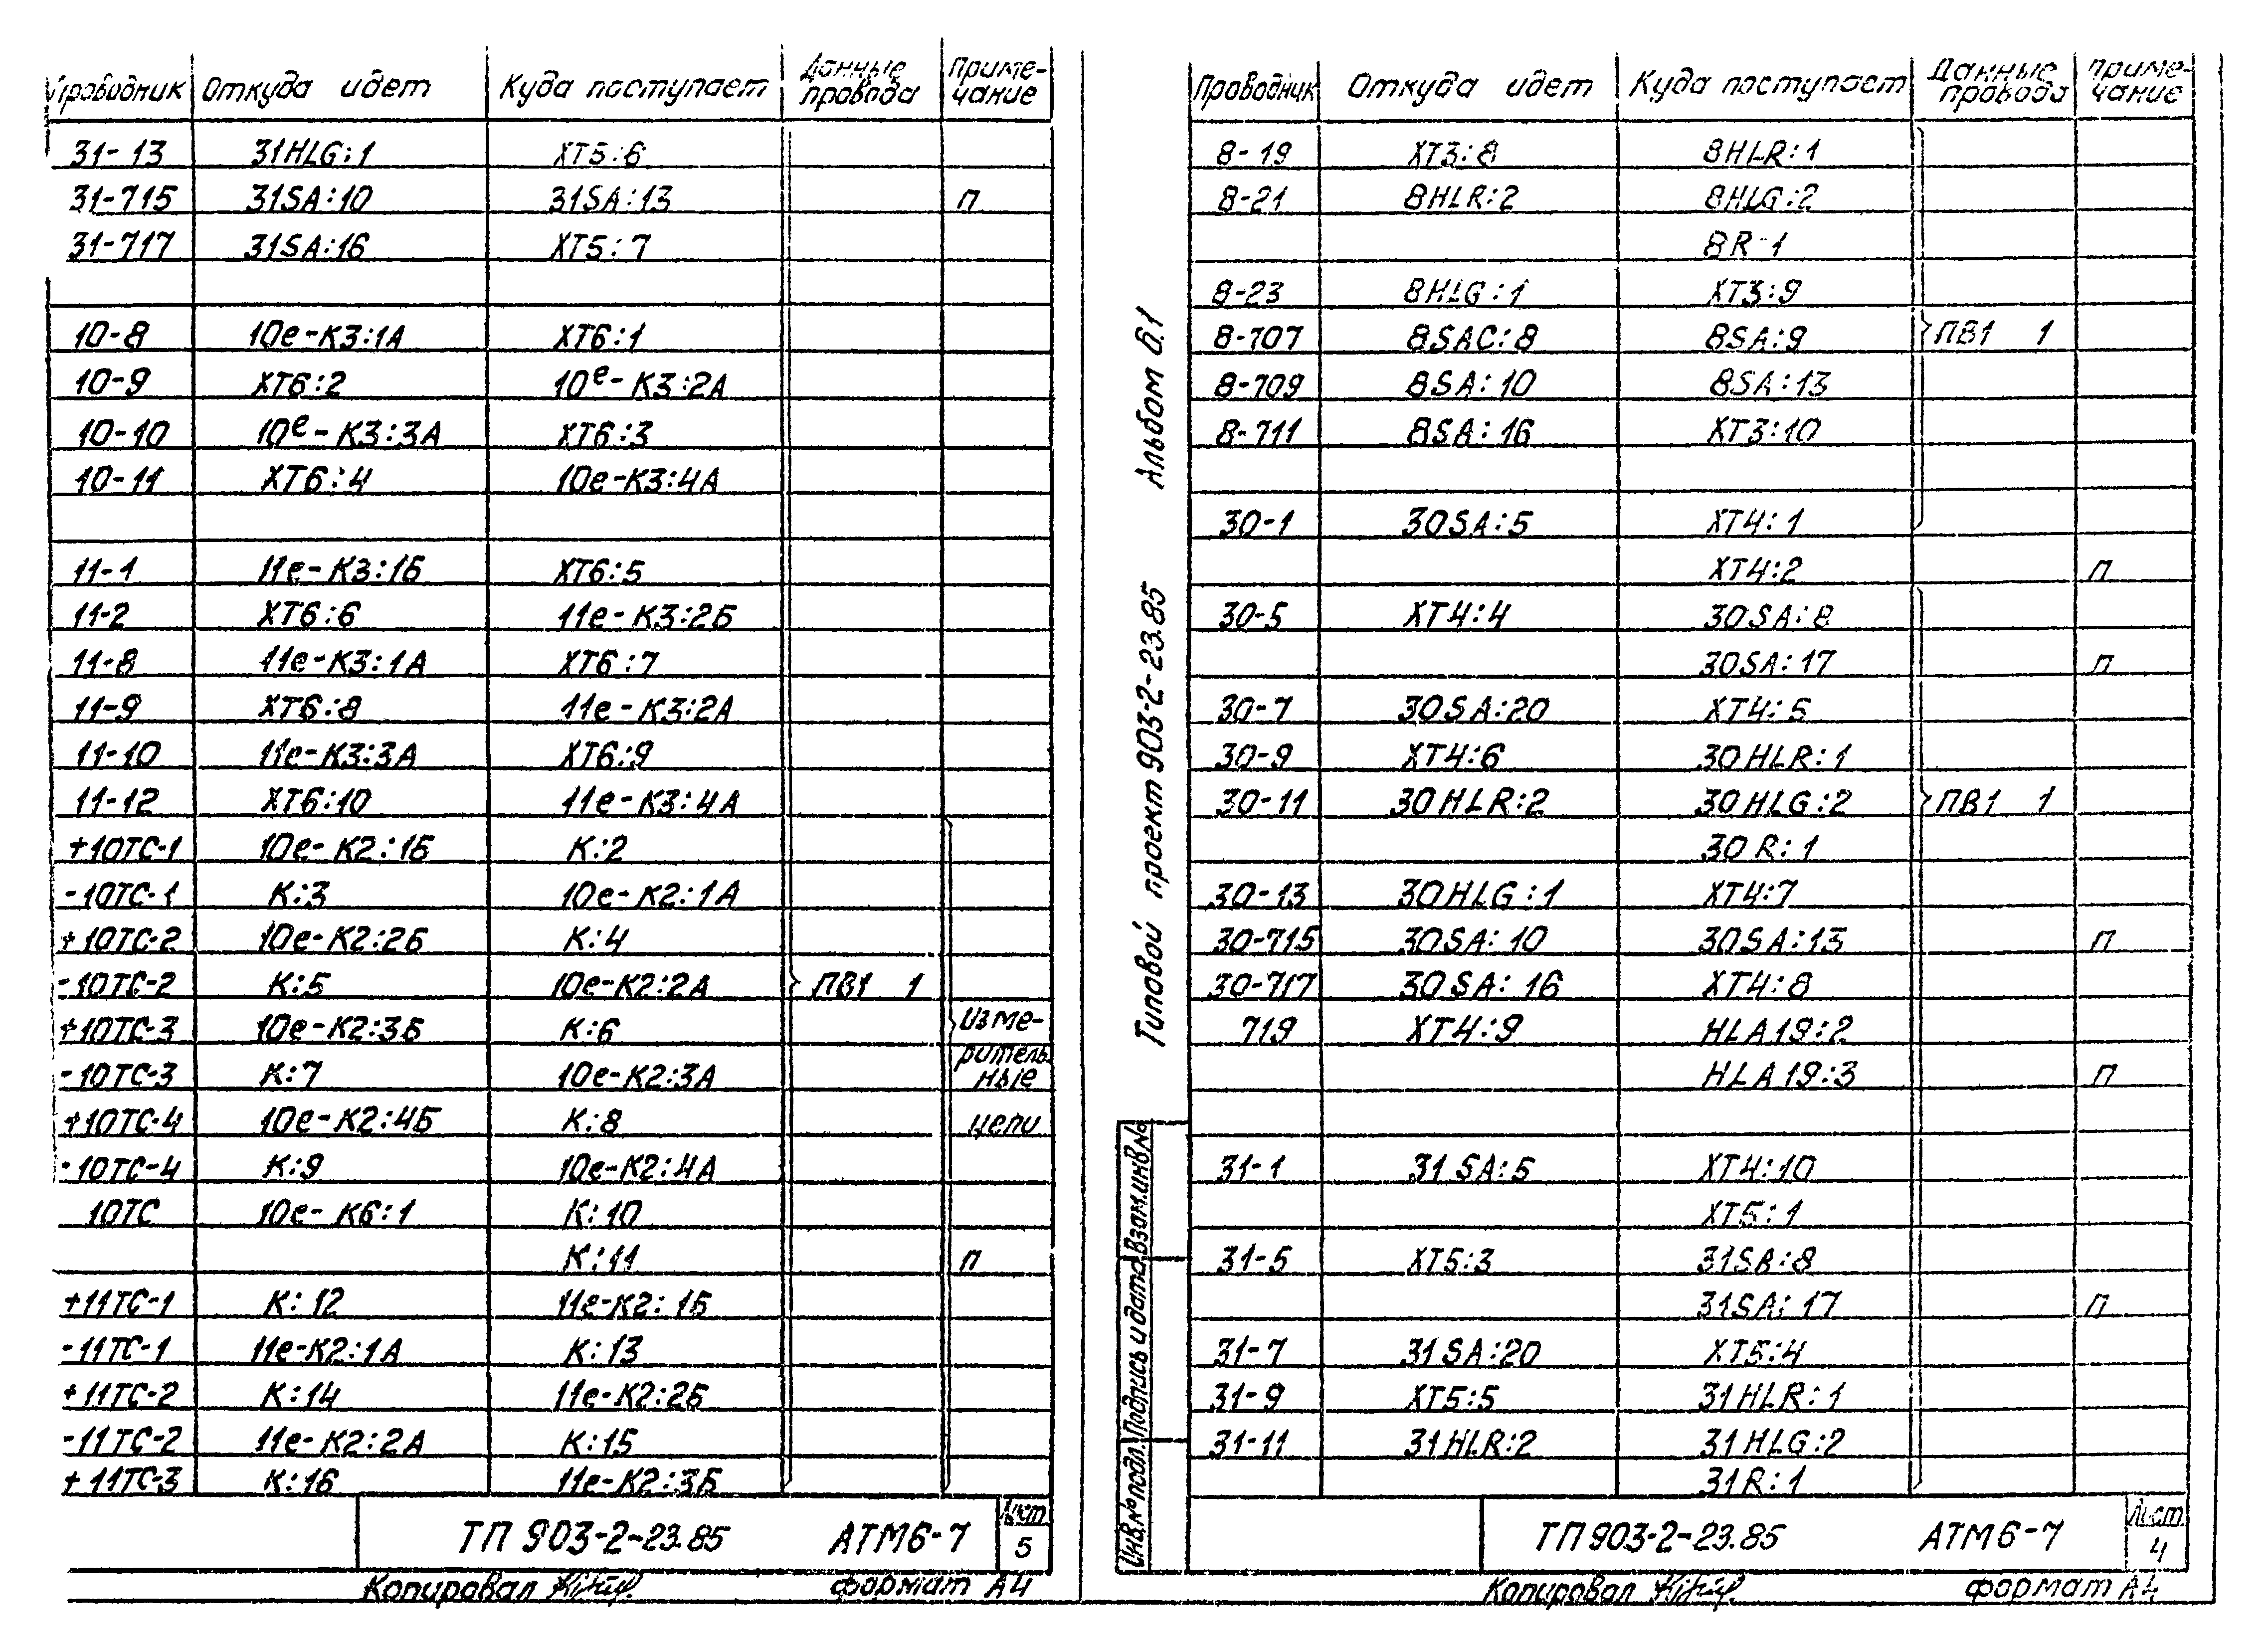 Проводник Откуда идет Куда поступает Данные провода Примечание
31-13 31HLG:1 XT5:6
31-715 31SA:10 31SA:13 п
31-717 31SA:16 XT5:7
10-8 10е-К3:1А XT6:1
10-9 XT6:2 10е-К3:2А
10-10 10е-К3:3А XT6:3
10-11 XT6:4 10е-К3:4А
11-1 11е-К3:1Б XT6:5
11-2 XT6:6 11е-К3:2Б
11-8 11е-К3:1А XT6:7
11-9 XT6:8 11е-К3:2А
11-10 11е-К3:3А XT6:9
11-12 XT6:10 11е-К3:4А
+10ТС-1 10е-К2:1Б К:2
-10ТС-1 К:3 10е-К2:1А
+10ТС-2 10е-К2:2Б К:4
-10ТС-2 К:5 10е-К2:2А ПВ1 1
+10ТС-3 10е-К2:3Б К:6 изме-
ритель
-10ТС-3 К:7 10е-К2:3А ные
+10ТС-4 10е-К2:4Б К:8 цепи
-10ТС-4 К:9 10е-К2:4А
10ТС 10е-К6:1 К:10
К:11 п
+11ТС-1 К:12 11е-К2:1Б
-11ТС-1 11е-К2:1А К:13
+11ТС-2 К:14 11е-К2:2Б
-11ТС-2 11е-К2:2А К:15
+11ТС-3 К:16 11е-К2:3Б
ТП 903-2-23.85 АТМ6-7 Лист
5
Копировал формат А4
Альбом 6.1
Типовой проект 903-2-23.85
Взам.инв.№
Подпись и дата
Инв.№ подл.
Проводник Откуда идет Куда поступает Данные провода Примечание
8-19 XT3:8 8HLR:1
8-21 8HLR:2 8HLG:2
8R:1
8-23 8HLG:1 XT3:9
8-707 8SAC:8 8SA:9 ПВ1 1
8-709 8SA:10 8SA:13
8-711 8SA:16 XT3:10
30-1 30SA:5 XT4:1
XT4:2 п
30-5 XT4:4 30SA:8
30SA:17 п
30-7 30SA:20 XT4:5
30-9 XT4:6 30HLR:1
30-11 30HLR:2 30HLG:2 ПВ1 1
30R:1
30-13 30HLG:1 XT4:7
30-715 30SA:10 30SA:13 п
30-717 30SA:16 XT4:8
719 XT4:9 HLA19:2
HLA19:3 п
31-1 31SA:5 XT4:10
XT5:1
31-5 XT5:3 31SA:8
31SA:17 п
31-7 31SA:20 XT5:4
31-9 XT5:5 31HLR:1
31-11 31HLR:2 31HLG:2
31R:1
ТП 903-2-23.85 АТМ6-7 Лист
4
Копировал формат А4